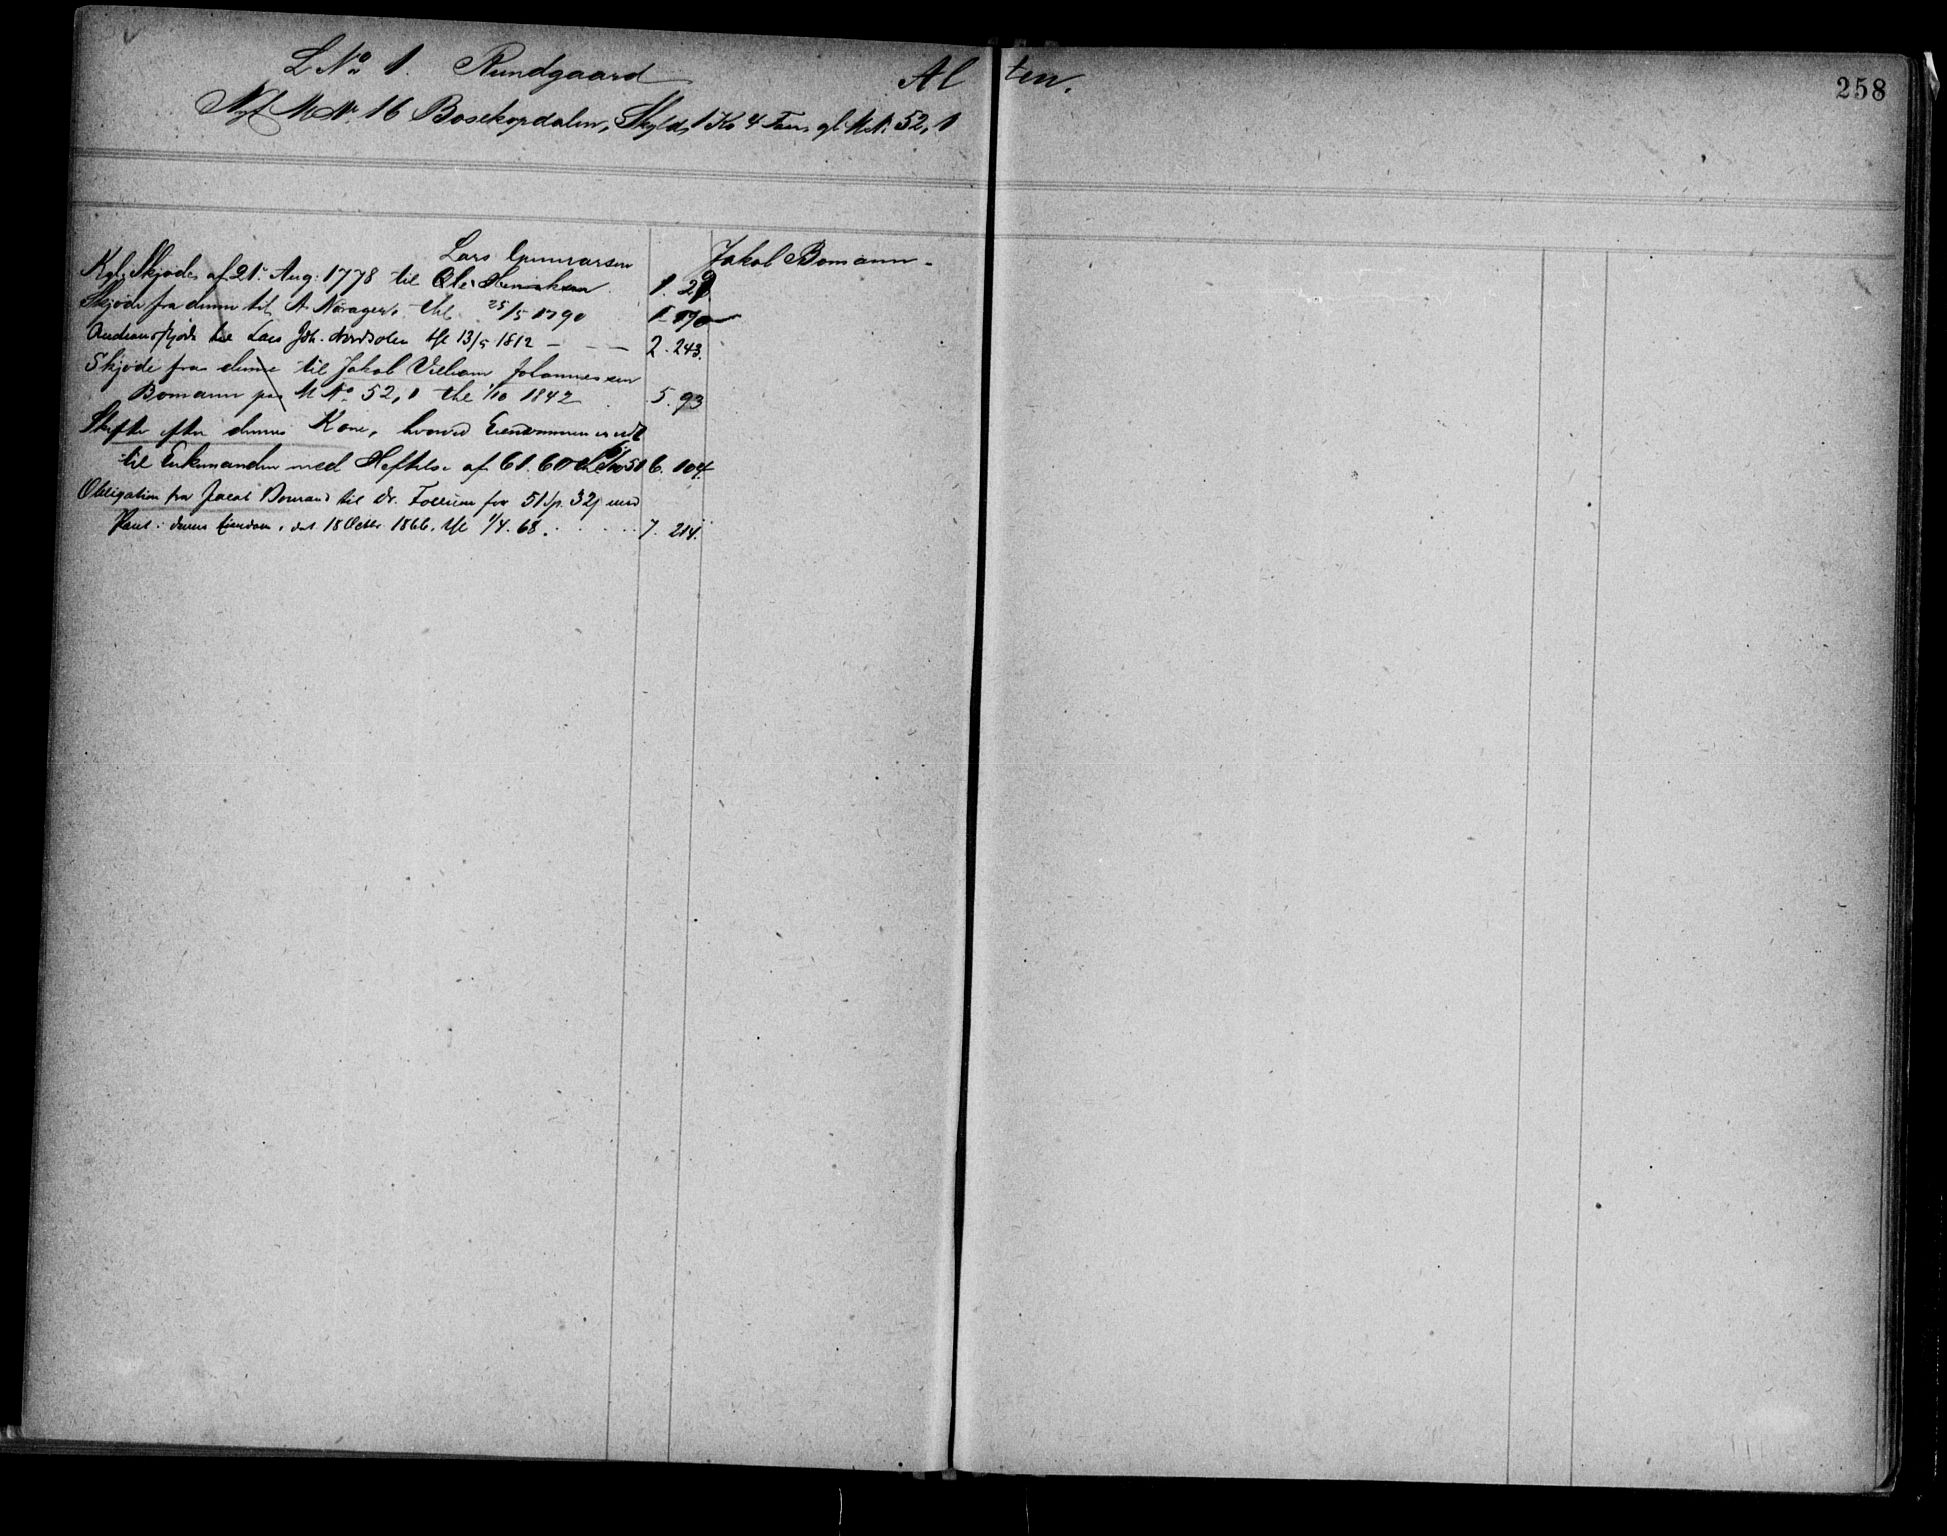 L No 1. Rundgaard Alten. 258
Nyt M.Nr. 16 Bosekopdalen, Skyld, 1 Kr 4 Øre, gl. M.N. 52, 1
Lars Gunnarsen Jakob Bomann
Kgl. Skjøde af 21. Aug. 1778 til Ole Henriksen 1. 29
Skjøde fra denne til A. Norager, thl. 25/5 1790 1. 170
Auctionsskjøde til Lars Joh. Nordvolen thl 13/5 1812 — — — 2. 243.
Skjøde fra denne til Jakob Vilhem Johannessen
Bomann paa M No 52, 1 thl 1/10 1842 5. 93
Skifte efter dennes Kone, hvorved Eiendommen er udl
til Enkemanden med Heftelse af 61. 60 6. 104
Obligation fra Jacob Bomand til Dr. Follum for 51 Sp. 32 s med
Pant i denne Eiendom, dat. 18 Octbr. 1866, thl 1/4. 68. 7. 214.